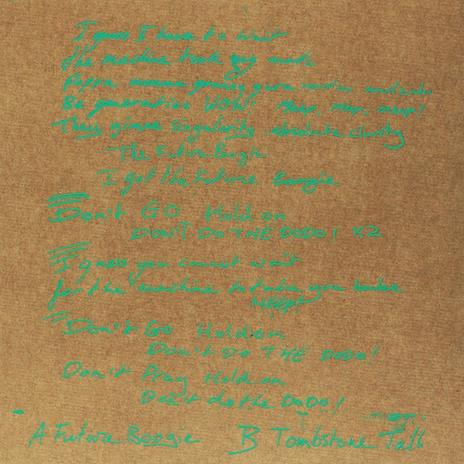 I guess I have to wait
the machine took guy made
Be generation WOW! Meep, meep, meep!
gimme Singularity absolute clarity
The Future Boogie
I got the Future Boogie
Don't GO Hold on
DON'T DO THE DODO! X2
I guess you cannot wait
for the machine to make you
Don't Go Hold on
Don't DO THE DODO!
Don't Pray Hold on
Don't do the DoDo!
A Future Boogie B Tombstone Tall